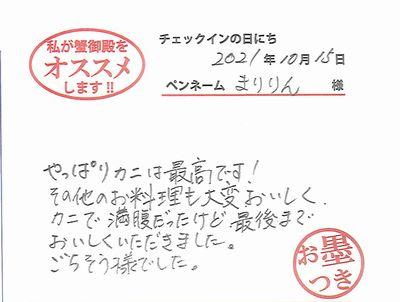 私が蟹御殿を
オススメ
します!!
チェックインの日にち
2021年10月15日
ペンネーム まりりん 様
やっぱりカニは最高です!
その他のお料理も大変おいしく、
カニで満腹だったけど最後まで
おいしくいただきました。
ごちそう様でした。
お墨
つき